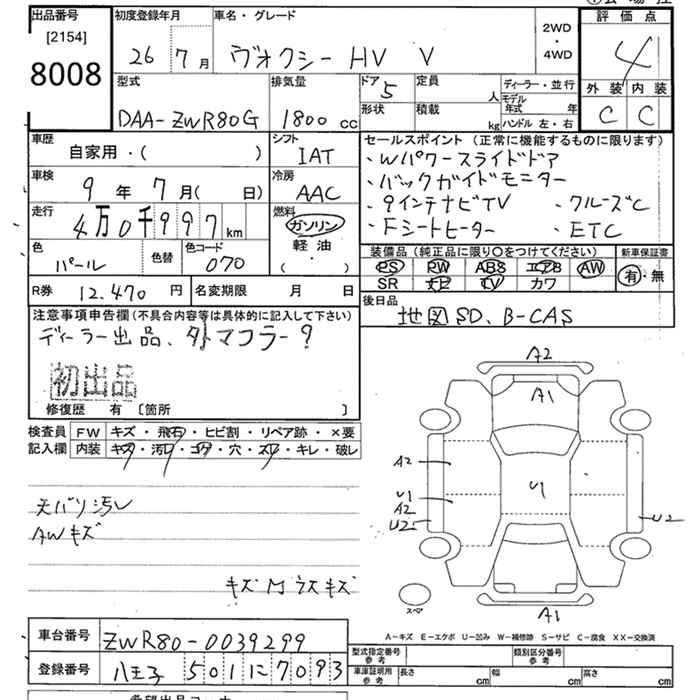 出品番号
[2154]
8008
初度登録年月
26 7月
車名・グレード
ヴォクシー HV V
2WD
・
4WD
評価点
4
外装 内装
C C
型式
DAA-ZWR80G
排気量
1800 cc
ドア 5
形状
定員 人
積載 kg
ディーラー・並行
モデル年式 年
ハンドル 左・右
車歴
自家用・( )
シフト
IAT
車検
9年 7月( 日)
冷房
AAC
走行
4万0千997 km
燃料
ガソリン
軽油
( ・ )
色
パール
色替
色コード
070
R券 12.470 円
名変期限 月 日
セールスポイント (正常に機能するものに限ります)
・Wパワースライドドア
・バックガイドモニター
・9インチナビTV ・クルーズC
・Fシートヒーター ・ETC
装備品(純正品に限り○をつけてください)
新車保証書
PS PW ABS エアB AW
有・無
SR ナビ TV カワ
後日品
地図SD、B-CAS
注意事項申告欄(不具合内容等は具体的に記入して下さい)
ディーラー出品、外マフラー?
初出品
修復歴 有 [箇所 ]
検査員記入欄
FW キズ・飛石・ヒビ割・リペア跡・×要
内装 キズ・汚レ・コゲ・穴・スレ・キレ・破レ
天バリ汚レ
AWキズ
キズMラスキズ
A2
A1
A2
U1
U1
A2
U2
U2
A1
スペア
A-キズ E-エクボ U-凹み W-補修跡 S-サビ C-腐食 XX-交換済
車台番号
ZWR80-0039299
登録番号
八王子 501 に 7093
型式指定番号
参考
類別区分番号
参考
車庫証明用
参考
長さ cm
幅 cm
高さ cm